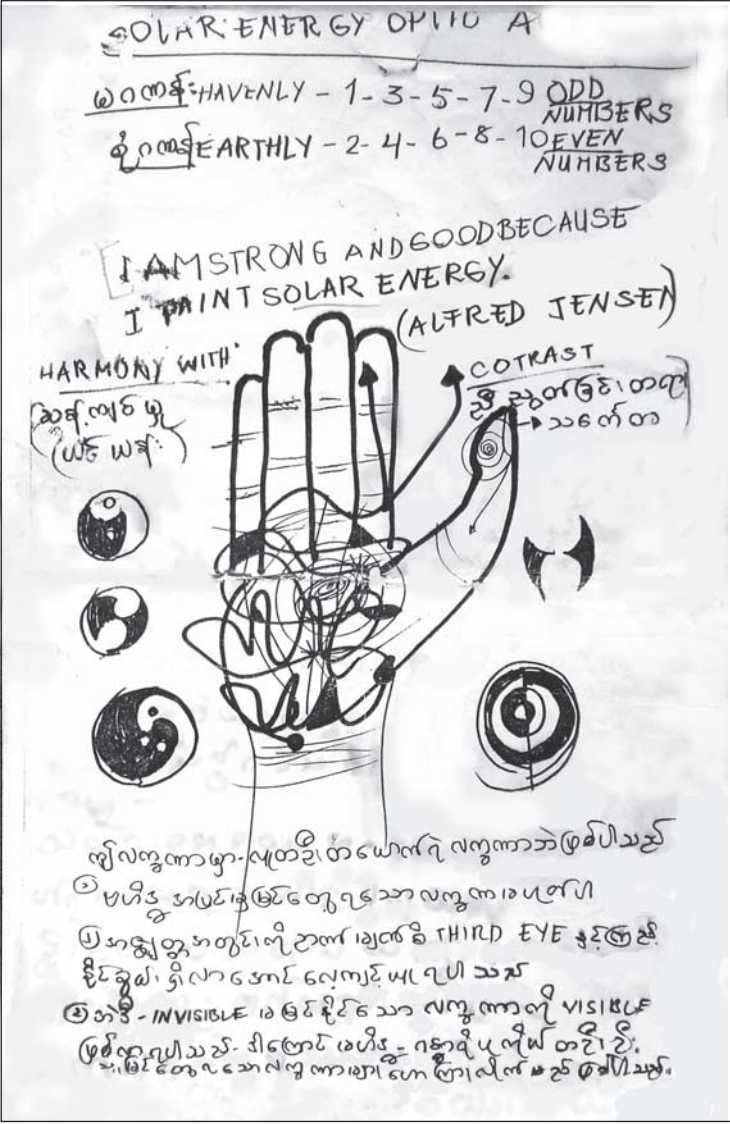 SOLAR ENERGY OPTIC A
မဂဏန်း HAVENLY - 1 - 3 - 5 - 7 - 9 ODD
NUMBERS
စုံဂဏန်း EARTHLY - 2 - 4 - 6 - 8 - 10 EVEN
NUMBERS
I AM STRONG AND GOOD BECAUSE
I PAINT SOLAR ENERGY.
(ALFRED JENSEN)
HARMONY WITH
(ဆန့်ကျင်မှု
(ယင် ယန်း)
COTRAST
ညီညွတ်ခြင်း
ဤလက္ခဏာမှာ - လူတဦးတယောက်ရဲ့ လက္ခဏာဘဲဖြစ်ပါသည်
ဗဟိဒ္ဓ အပြင်၌မြင်တွေ့ရသော လက္ခဏာမဟုတ်ပါ
အဇ္ဈတ္တအတွင်းကို ဉာဏ်မျက်စိ THIRD EYE နှင့်ကြည့်
နိုင်စွမ်းရှိလာအောင် လေ့ကျင့်ယူရပါသည်
အဲဒီ - INVISIBLE မမြင်နိုင်သော လက္ခဏာကို VISIBLE
ဖြစ်လာရပါသည် - ဒါကြောင့် ဗဟိဒ္ဓ
မြင်တွေ့ရသောလက္ခဏာများ